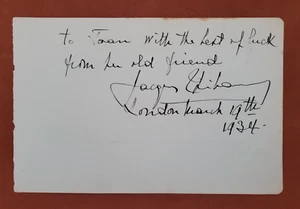 to Joan with the best of luck
from her old friend
Jacques Thibaud
London March 19th
1934.